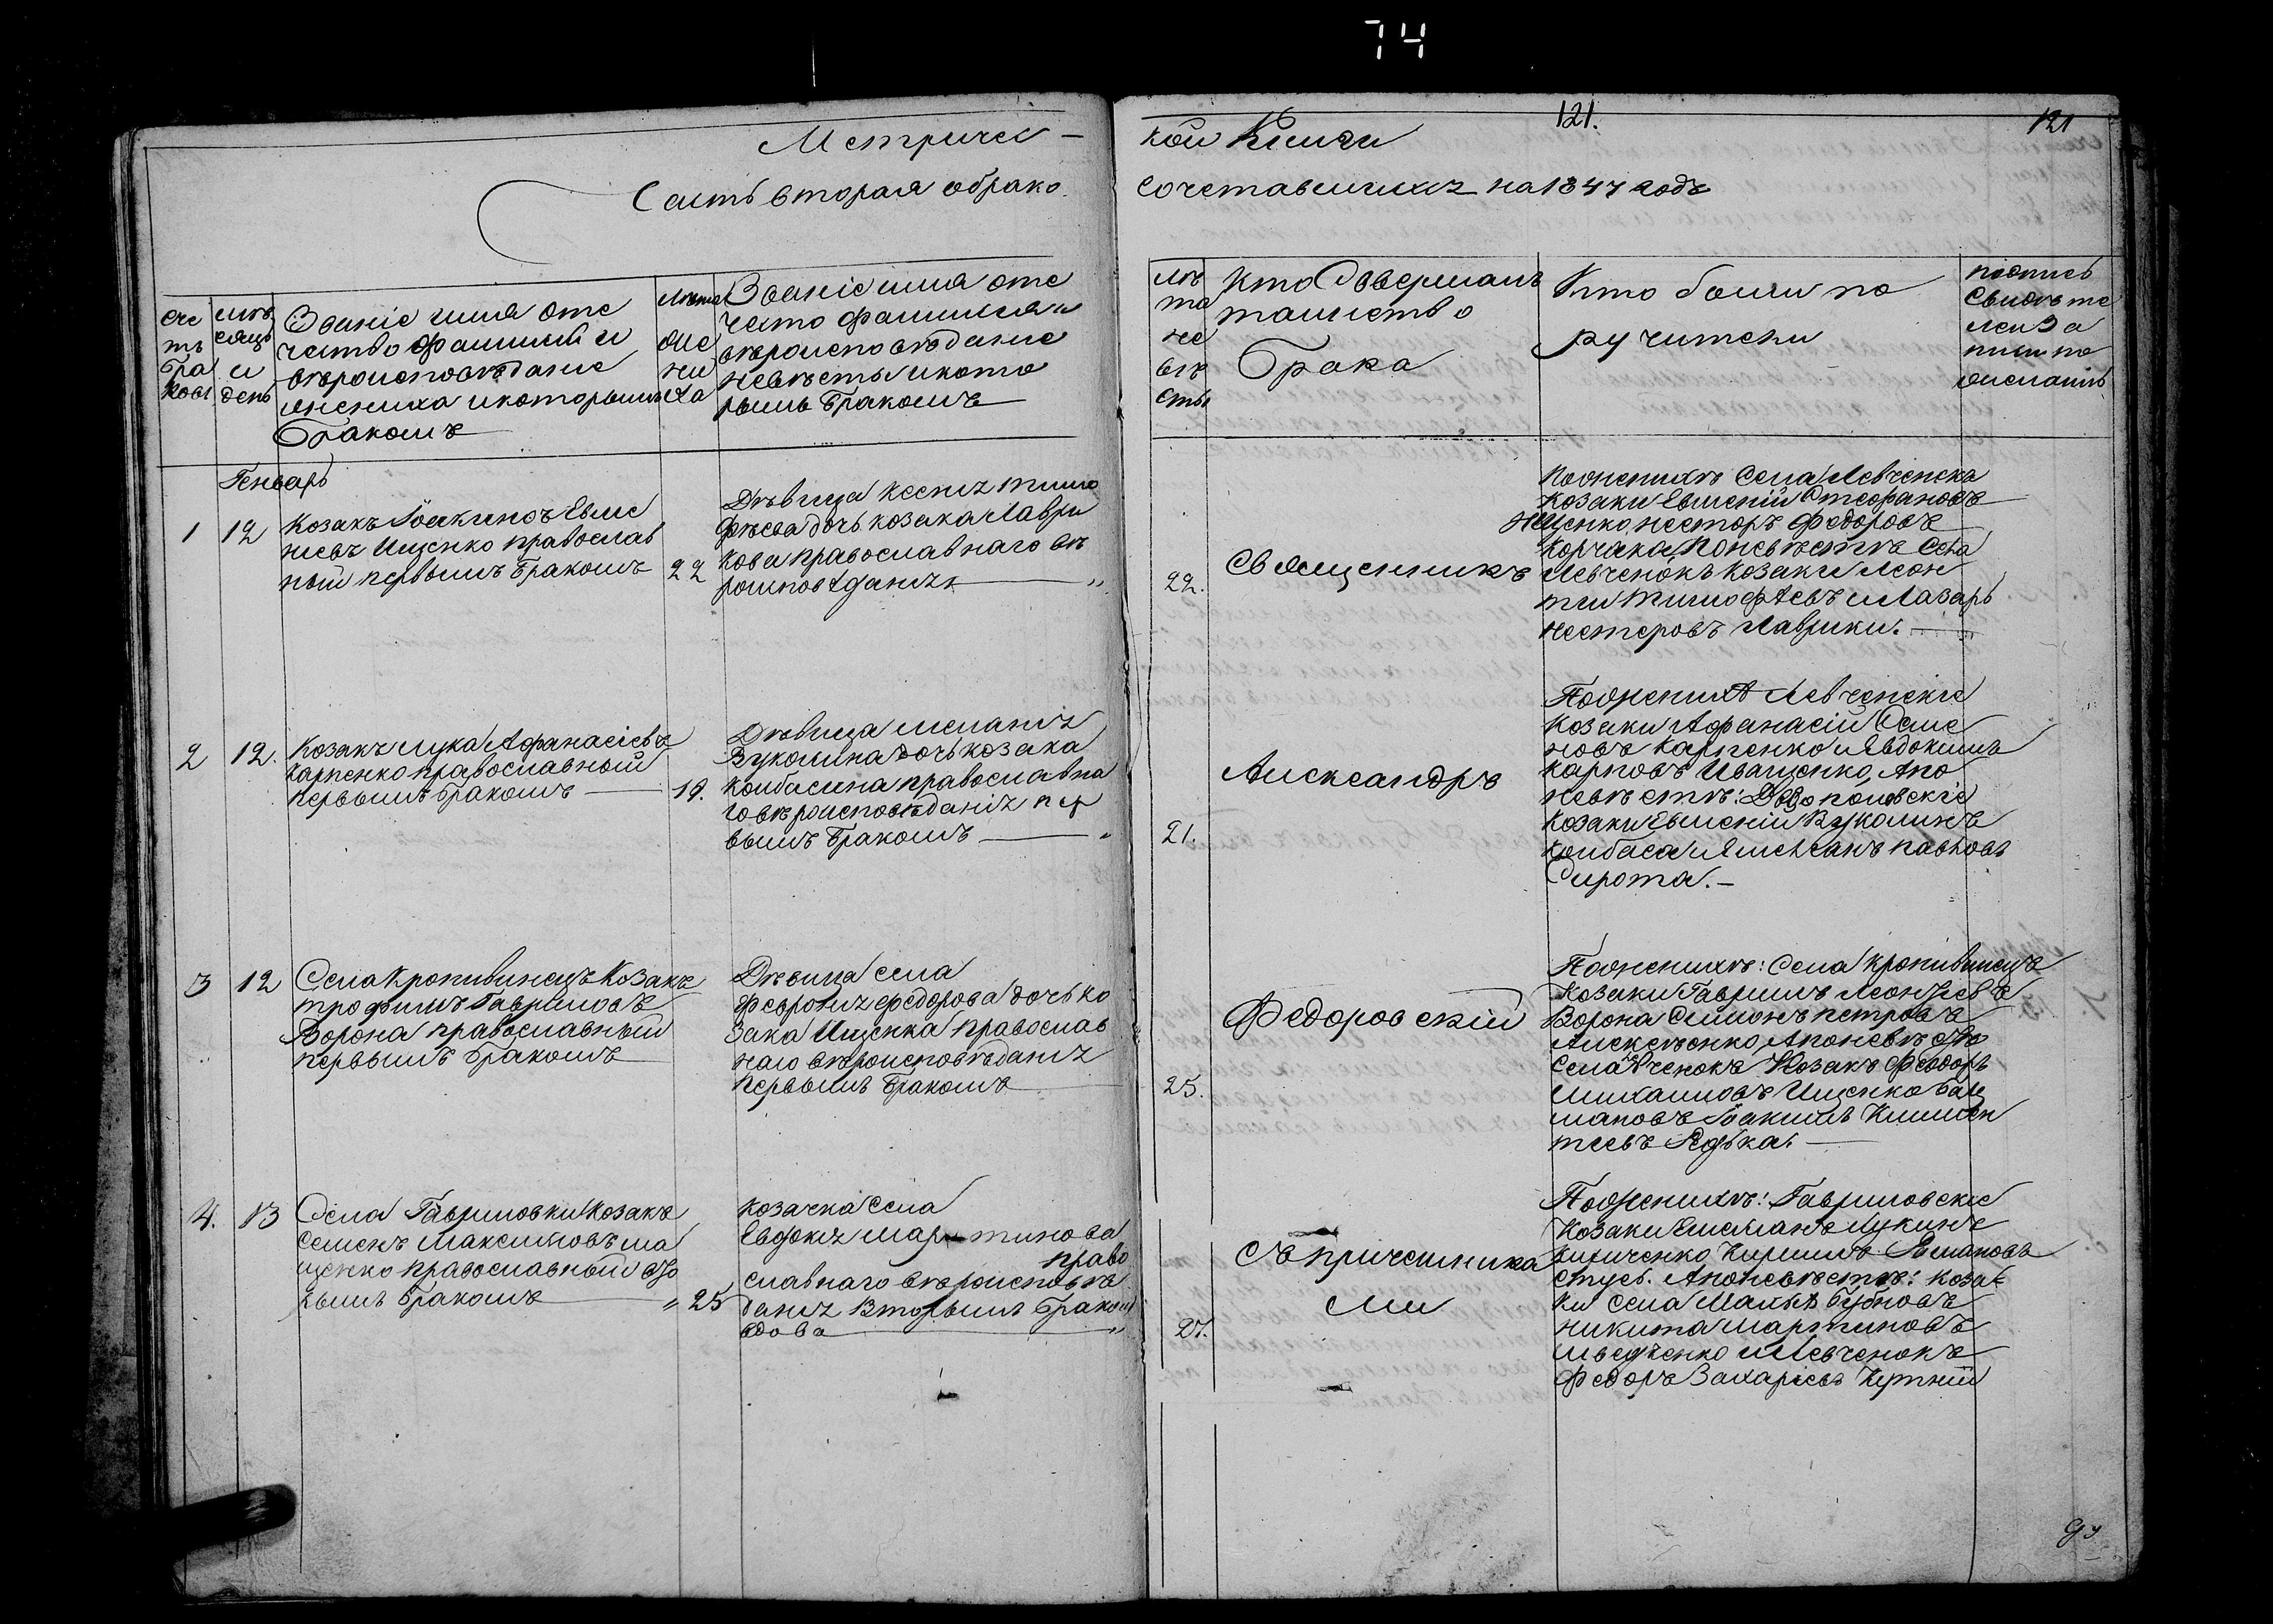 74
121.
121
Метричес-
кой Книги
Часть вторая о брако
сочетавшихся на 1847 годъ
Сче
тъ
бра
ковъ
мѣ
сяцъ
и
день
Званіе имя отe
чество фамилия и
вѣроисповѣданіе
жениха и которымъ
бракомъ
Лѣта
же
ни
ха
Званіе имя отe
чество фамилия и
вѣроисповѣданіе
невѣсты и кото
рымъ бракомъ
лѣ
та
не
вѣ
сты
Кто совершалъ
таинство
брака
Кто были по
ручители
подпись
свидѣте
лей за
писи по
желанію
Генварь
1
12
Козакъ Іоакимъ Евме
ніевъ Ищенко православ
ный первымъ бракомъ
22
Дѣвица Ксенія Тимо
фѣева дочь козака Лаври
кова православнаго вѣ
роисповѣданія
22.
Священникъ
По женихѣ Села Левченека
козаки Евменій Стефановъ
Ищенко Несторъ Федоровъ
Корчака, По невѣстѣ Села
Левченокъ козаки Леон
тій Тимофѣевъ и Лазарь
Нестеровъ Лаврики.
2
12.
Козакъ Лука Афанасіевъ
Карпенко православный
первымъ бракомъ
19.
Дѣвица Меланія
Вуколина дочь козака
Колбасина православна
го вѣроисповѣданія пер
вымъ бракомъ
21.
Александръ
По женихѣ Левченскіе
козаки Афанасій Семе
новъ Карпенко и Явдокимъ
Карповъ Иващенко, А по
невѣстѣ:
козаки Евменій Вуколинъ
Колбаса и Емельянъ Павловъ
Сирота.-
3
12
Села Кропивинецъ Козакъ
Трофимъ Гавриловъ
Ворона православный
первымъ бракомъ
Дѣвица села
Февронія Федорова дочь ко
зака Ищенка православ
наго вѣроисповѣданія
первымъ бракомъ
25.
Федоровскій
По женихѣ: Села Кропивинецъ
Козаки Гавриилъ Леонтіевъ
Ворона Симонъ Петровъ
Алексѣенко, А по невѣстѣ
Села Левченокъ Козакъ Феодоръ
Михаиловъ Ищенко
Іоакимъ Климен
тіевъ Рѣдька.
4.
13
Села Гавриловки Козакъ
Семенъ Максимовъ Ма
щенко православный вто
рымъ бракомъ
25
козачка Села
Евдокія Мартинова
право
славнаго вѣроисповѣ
данія Вторымъ бракомъ
вдова
27.
Съ причетника
ми
По женихѣ: Гавриловскіе
Козаки Емелианъ Лукинъ
Кириченко Кирилъ
Стусь. А по невѣстѣ: Коза
ки Села Малыхъ Бубновъ
Никита Мартиновъ
Шведченко и Левченокъ
Федоръ Захаріевъ Куткій